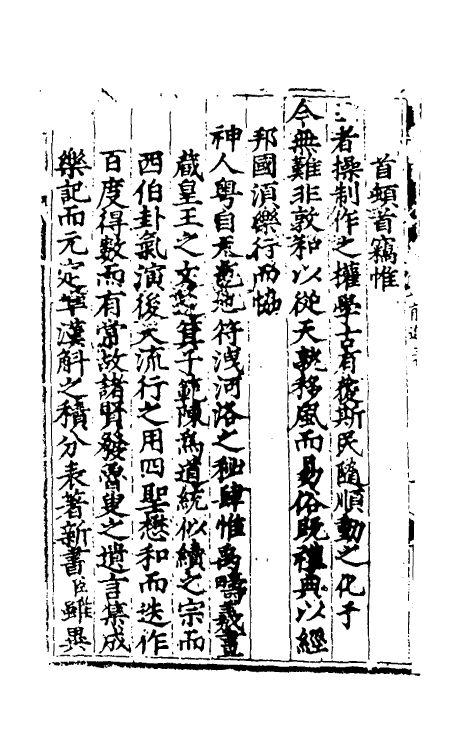 首頓首竊惟
者操制作之權學士有徵斯民隨順動之化于
今無難非敦和以從天孰移風而易俗旣禮典以經
邦國湏樂行而恊
神人粤自天地符洩河洛之秘肆惟禹疇羲畫
蔵皇王之文迨箕子範陳爲道統似續之宗而
西伯卦氣演後天流行之用四聖懋和而迭作
百度得數而有常故諸賢發瞽叟之遺言集成
樂記而元定筭漢斛之積分表著新書臣雖異